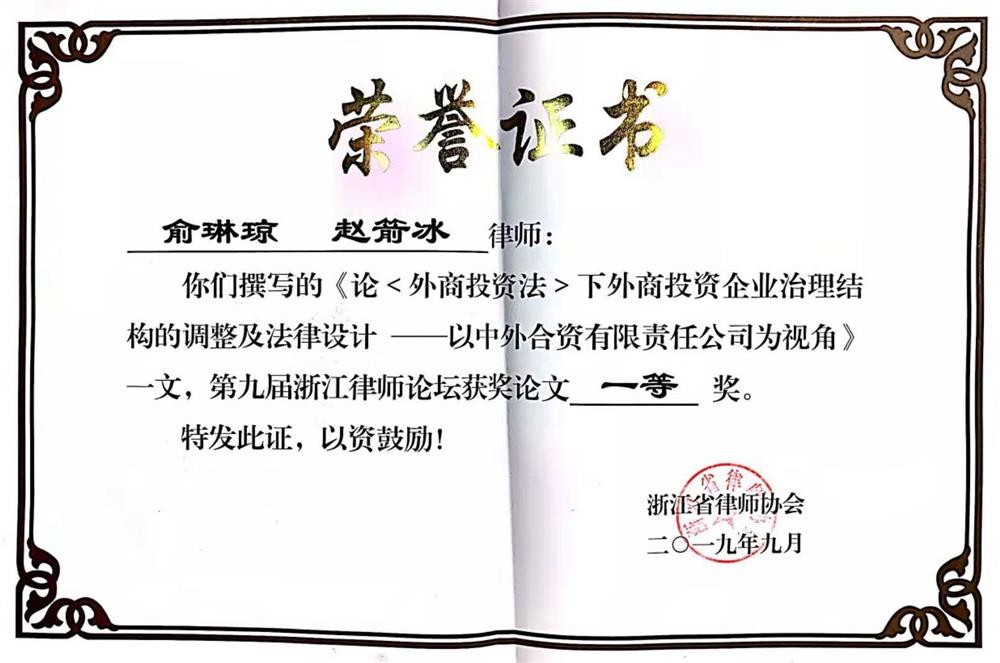 荣誉证书
俞琳琼 赵箭冰 律师：
你们撰写的《论＜外商投资法＞下外商投资企业治理结
构的调整及法律设计 ——以中外合资有限责任公司为视角》
一文，第九届浙江律师论坛获奖论文 一等 奖。
特发此证，以资鼓励！
浙江省律师协会
二〇一九年九月